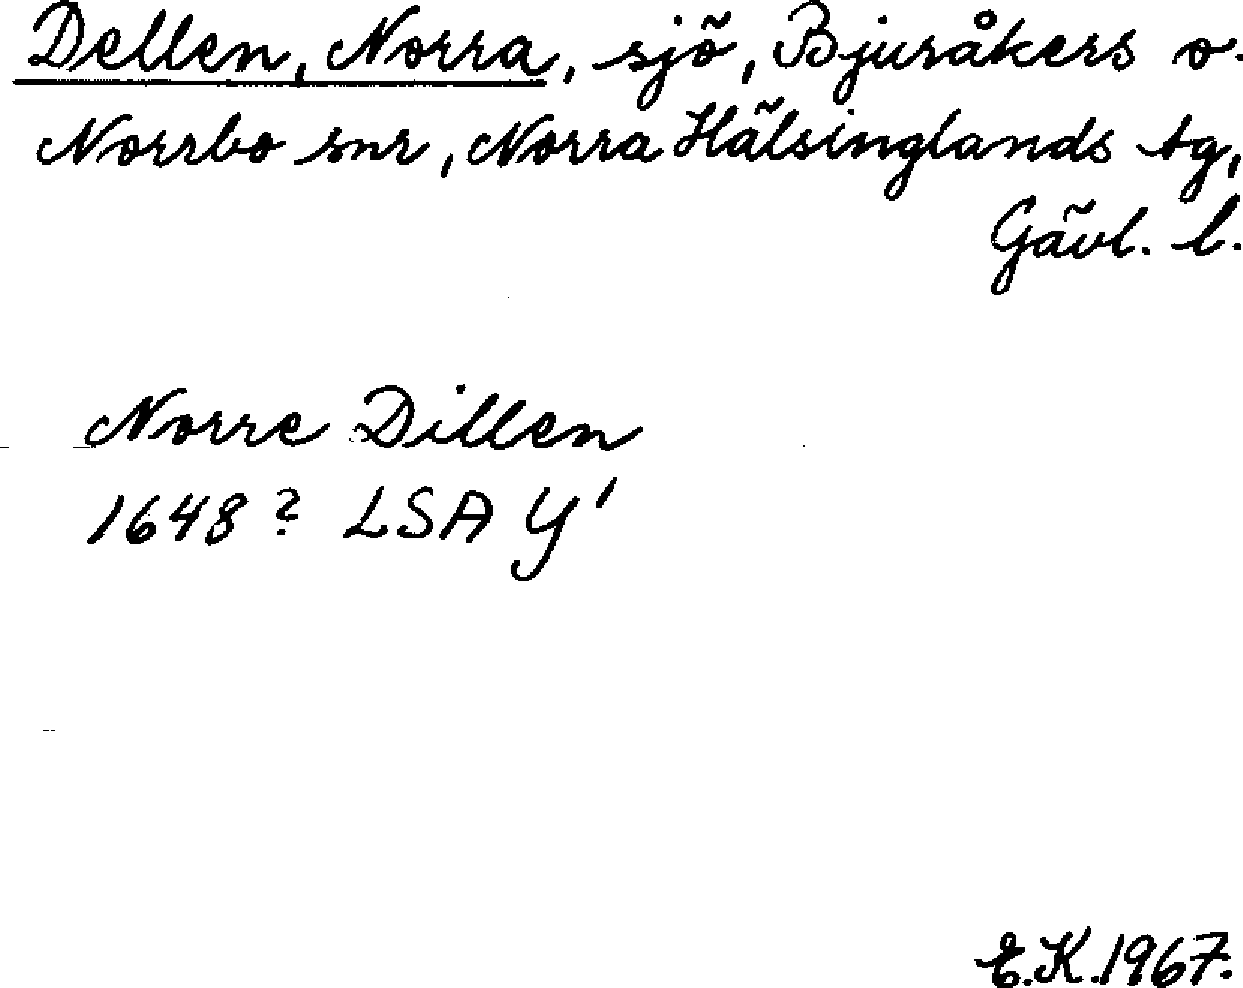 Dellen, Norra, sjö, Bjuråkers o.
Norrbo snr, Norra Hälsinglands tg,
Gävl. l.
Norre Dillen
1648? LSA Y'
E.K.1967.